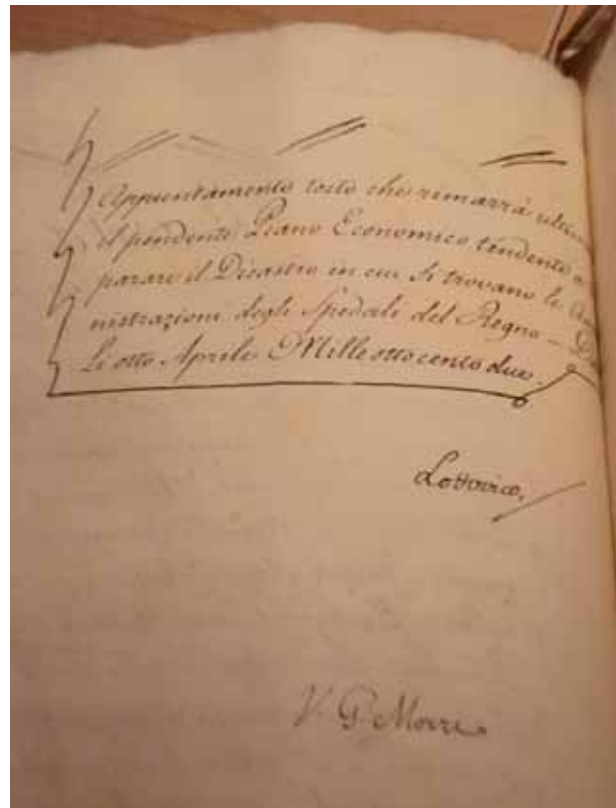 Appuntamento tosto che rimarrà ultim
il pendente Piano Economico tendente a
parare il Disastro in cui si trovano le Am
nistrazioni degli Spedali del Regno —
Li otto Aprile Mille otto cento due.
Lodovico,
V. G. Morri